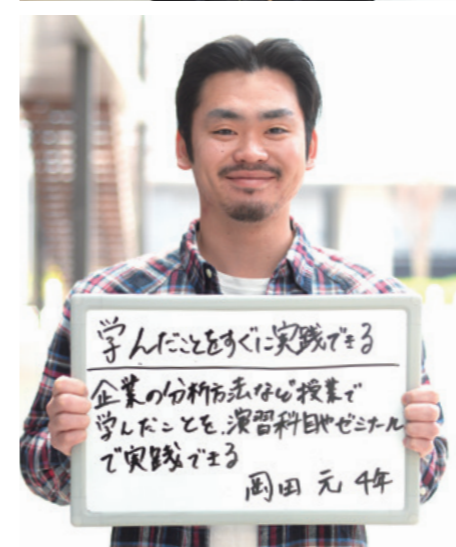 学んだことをすぐに実践できる
企業の分析方法など授業で
学んだことを、演習科目やゼミナール
で実践できる
岡田 元 4年